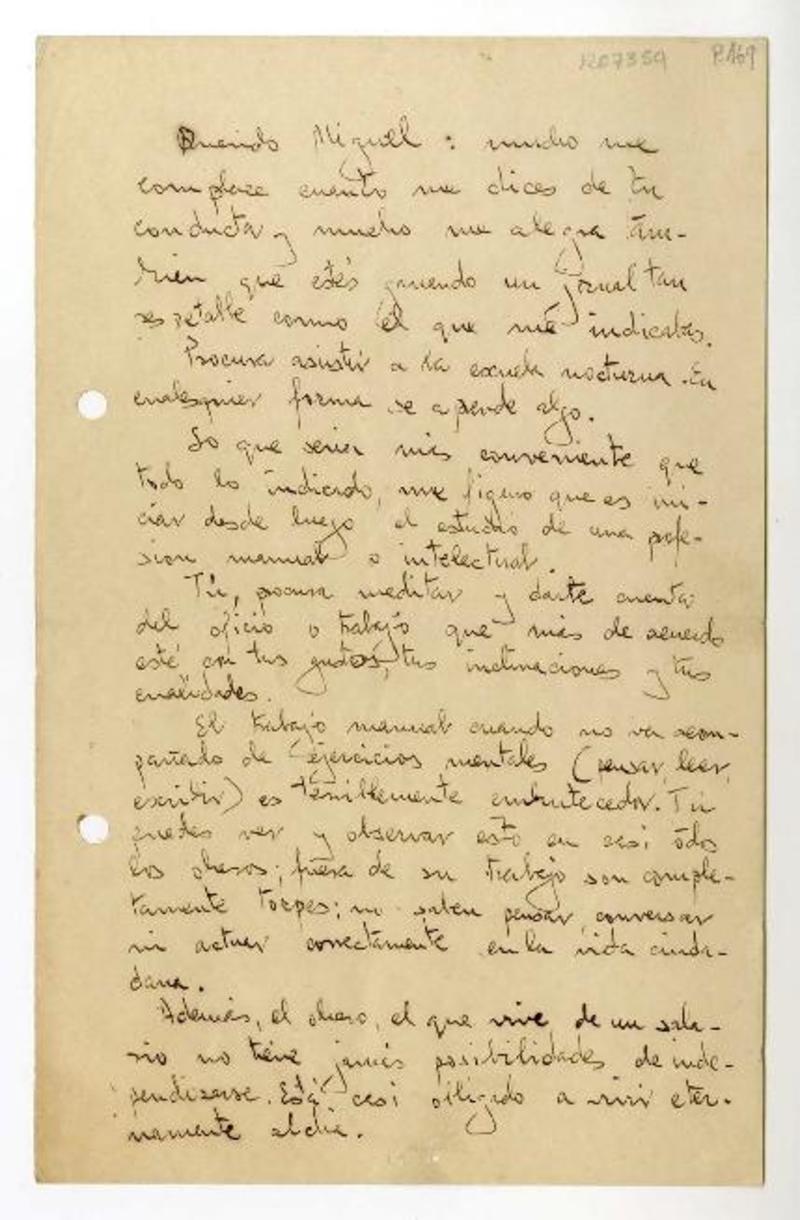 1207359 P.169
Querido Miguel: mucho me
complace cuanto me dices de tu
conducta y mucho me alegra tam-
bien que estés ganando un jornal tan
respetable como el que me indicabas.
Procura asistir a la escuela nocturna. En
cualesquier forma se aprende algo.
Lo que seria más conveniente que
todo lo indicado, me figuro que es ini-
ciar desde luego el estudio de una profe-
sion manual o intelectual.
Tú, procura meditar y darte cuenta
del oficio o trabajo que más de acuerdo
esté con tus gustos, tus inclinaciones y tus
cualidades.
El trabajo manual cuando no va acom-
pañado de ejercicios mentales (pensar, leer,
escribir) es terriblemente embrutecedor. Tú
puedes ver y observar esto en casi todos
los obreros; fuera de su trabajo son comple-
tamente torpes; no saben pensar, conversar
ni actuar correctamente en la vida ciuda-
dana.
Además, el obrero, el que vive de un sala-
rio no tiene jamás posibilidades de inde-
pendizarse. Está casi obligado a vivir eter-
namente al dia.